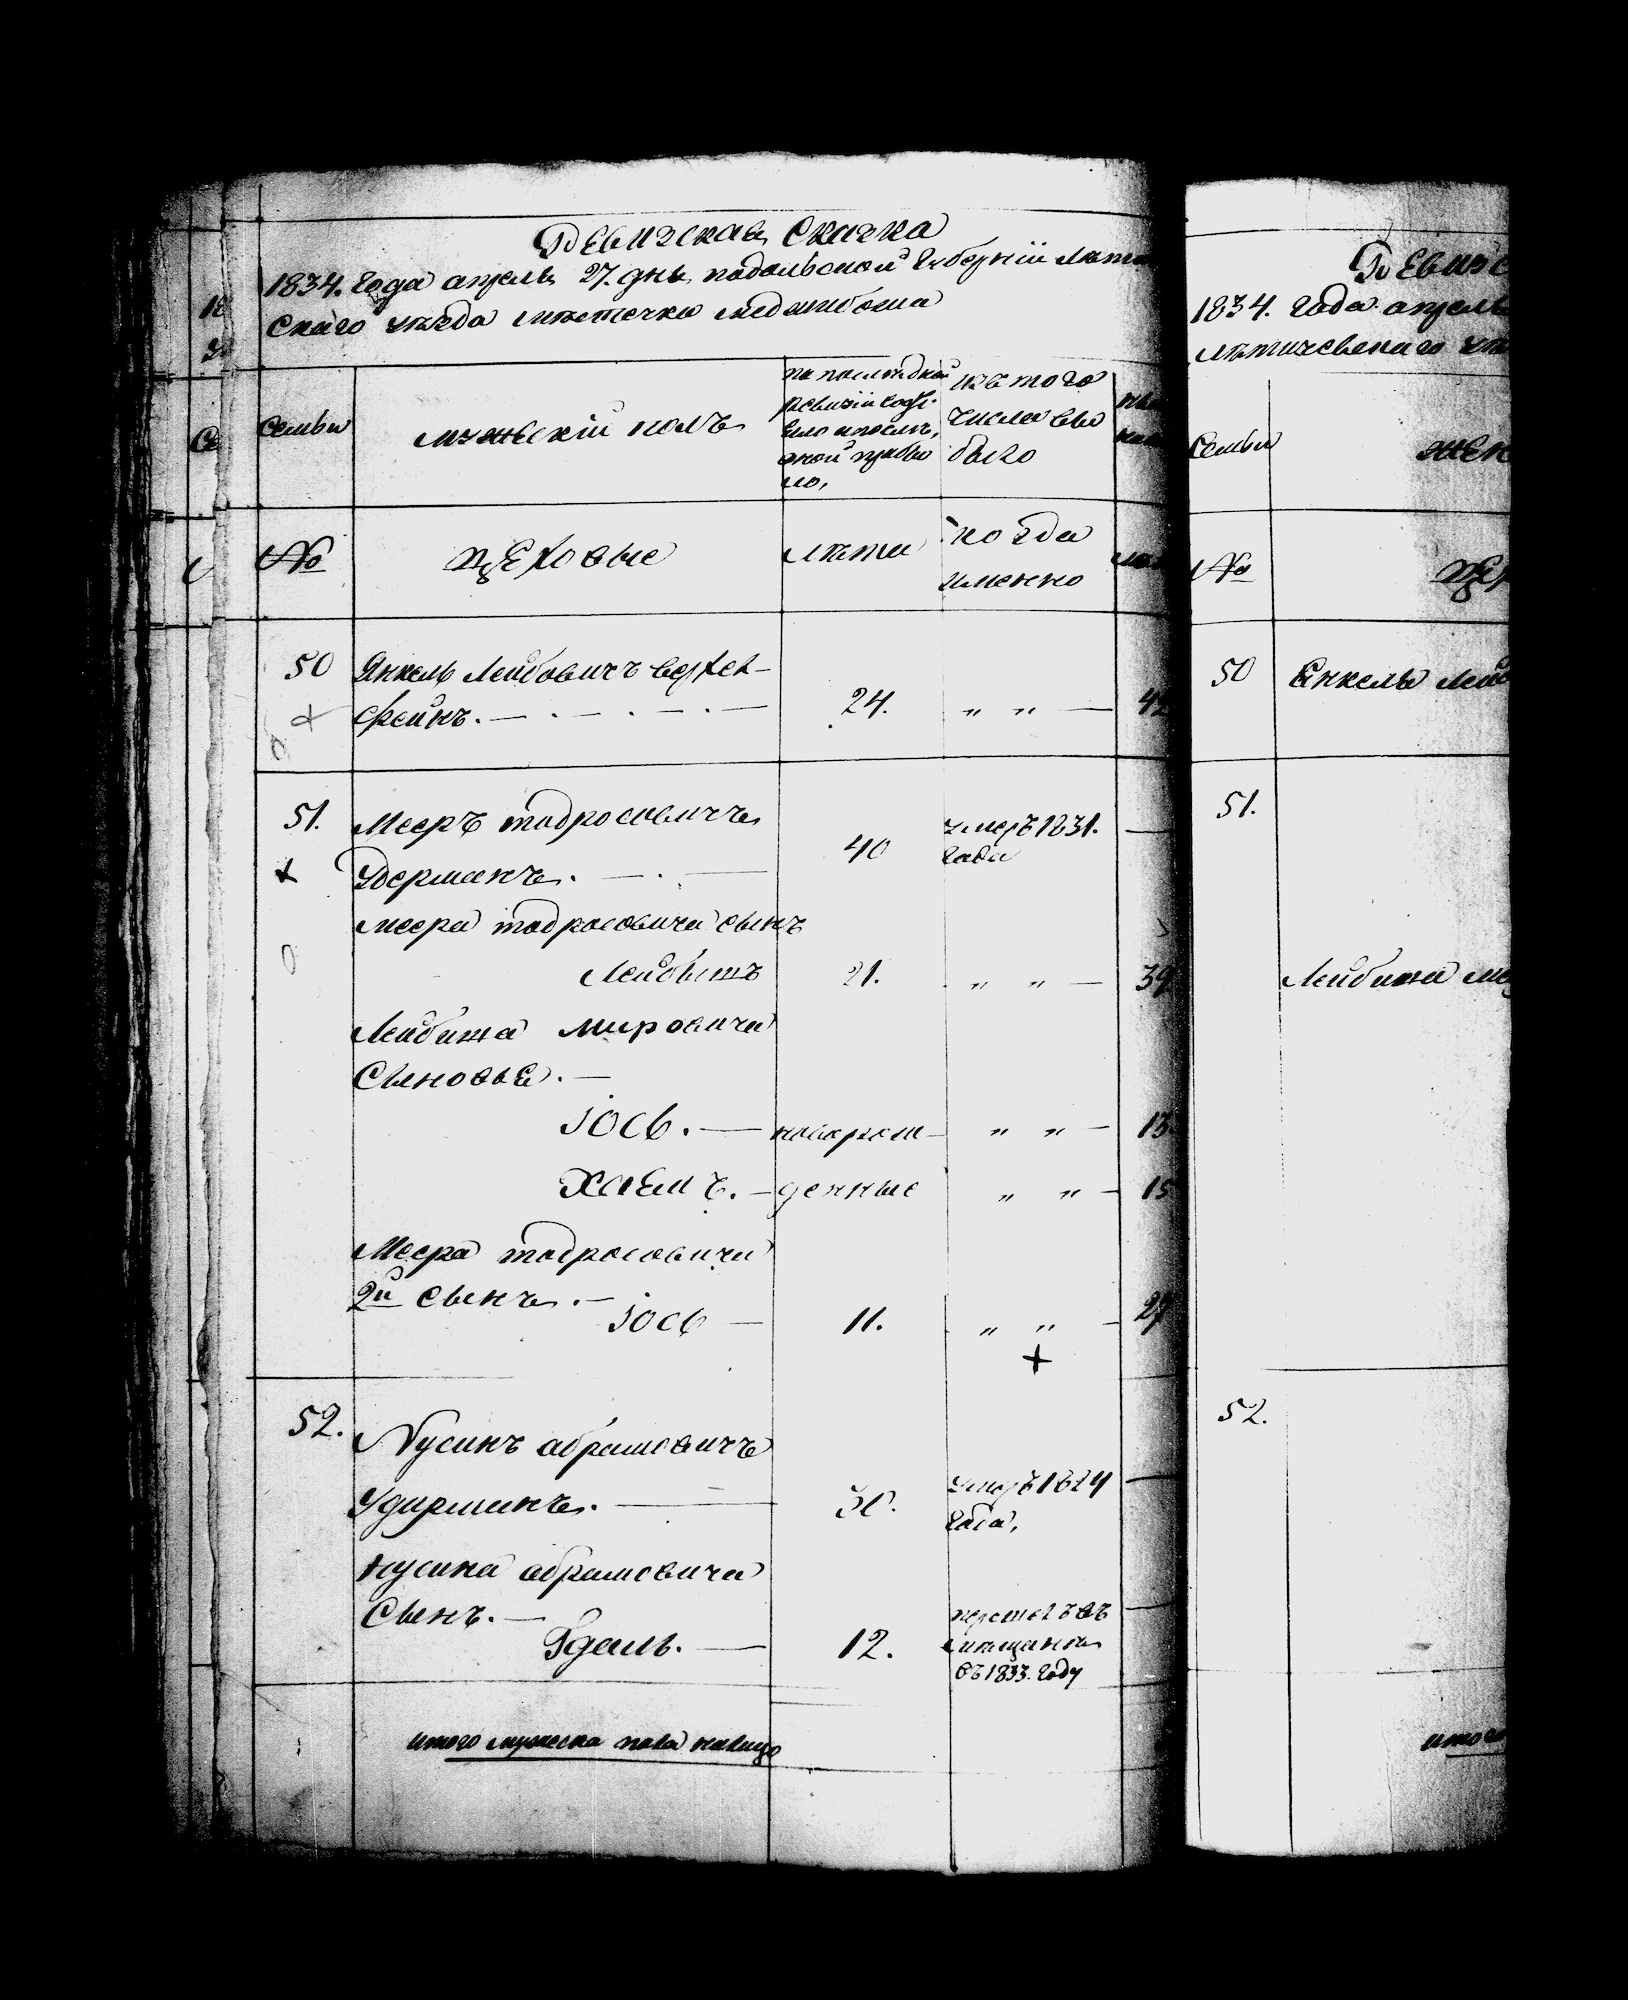 Ревизская Сказка
1834. Года апреля 27. дня подольской Губернии Лати
скаго уезда местечка меджибожа
Семьи
мужескiй полъ
по последней
ревизiи состо
яло и после
оной прибы
ло,
изъ того
числа вы
было
№
цеховые
лета
когда
именно
50 Янкель Лейбовичъ
фейнъ. 24. „ „ 42
51. Мееръ тодросовичъ
Удерманъ. 40 умеръ 1831.
Года
меера тодросовича сынъ
Лейбышъ 21. „ „ 39
Лейбиша мировича
Сыновья.
Iось. новорож „ „ 13
Хаемъ. денные „ „ 15
Меера тодросовича
2й сынъ.
Iось 11. „ „ 27
52. Нусинъ абрамовичъ
Удирманъ. 30. умеръ 1824
Года,
нусина абрамовича
Сынъ.
Удаль. 12. перешелъ въ
мещане
въ 1833. Году
итого мужеска пола налицо
Ревизс
1834. Года апреля
летичевскаго уе
Семьи
жен
№
цех
50 Янкеля Лейб
51.
Лейбиша ме
52.
итого